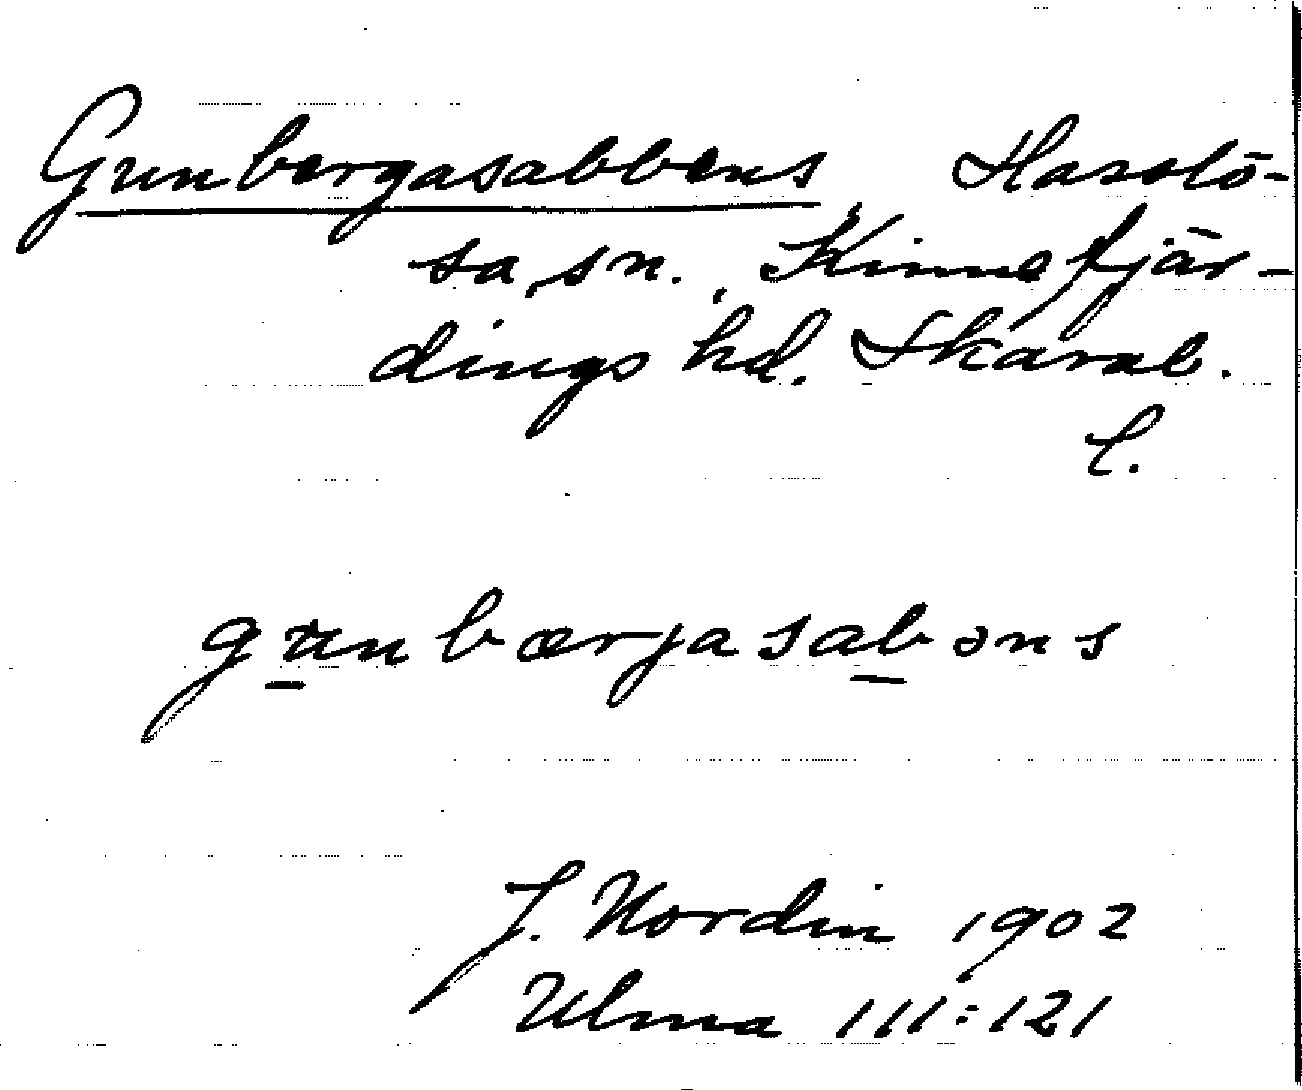 Gunbergasabbens Hasslö-
sa sn., Kinnefjär-
dings hd. Skarab.
l.
gunbærjasabəns
J. Nordin 1902
Ulma 111:121